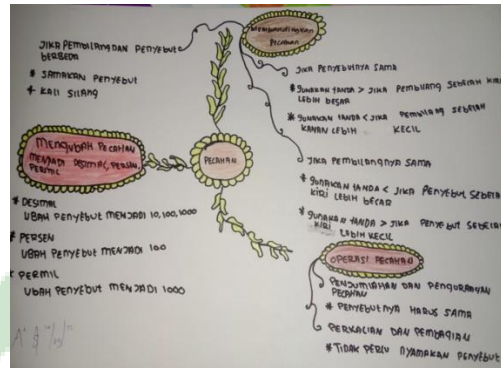 MEMBANDINGKAN
PECAHAN
JIKA PEMBILANG DAN PENYEBUT
BERBEDA
* SAMAKAN PENYEBUT
+ KALI SILANG
JIKA PENYEBUTNYA SAMA
* GUNAKAN TANDA > JIKA PEMBILANG SEBELAH KIRI
LEBIH BESAR
* GUNAKAN TANDA < JIKA PEMBILANG SEBELAH
KANAN LEBIH KECIL
JIKA PEMBILANGNYA SAMA
* GUNAKAN TANDA < JIKA PENYEBUT SEBELA
KIRI LEBIH BESAR
* GUNAKAN TANDA > JIKA PENYEBUT SEBELA
KIRI LEBIH KECIL
PECAHAN
MENGUBAH PECAHAN
MENJADI DESIMAL, PERSEN,
PERMIL
* DESIMAL
UBAH PENYEBUT MENJADI 10, 100, 1000
* PERSEN
UBAH PENYEBUT MENJADI 100
* PERMIL
UBAH PENYEBUT MENJADI 1000
OPERASI PECAHAN
PENJUMLAHAN DAN PENGURANGAN
PECAHAN
* PENYEBUTNYA HARUS SAMA
PERKALIAN DAN PEMBAGIAN
* TIDAK PERLU NYAMAKAN PENYEBUT